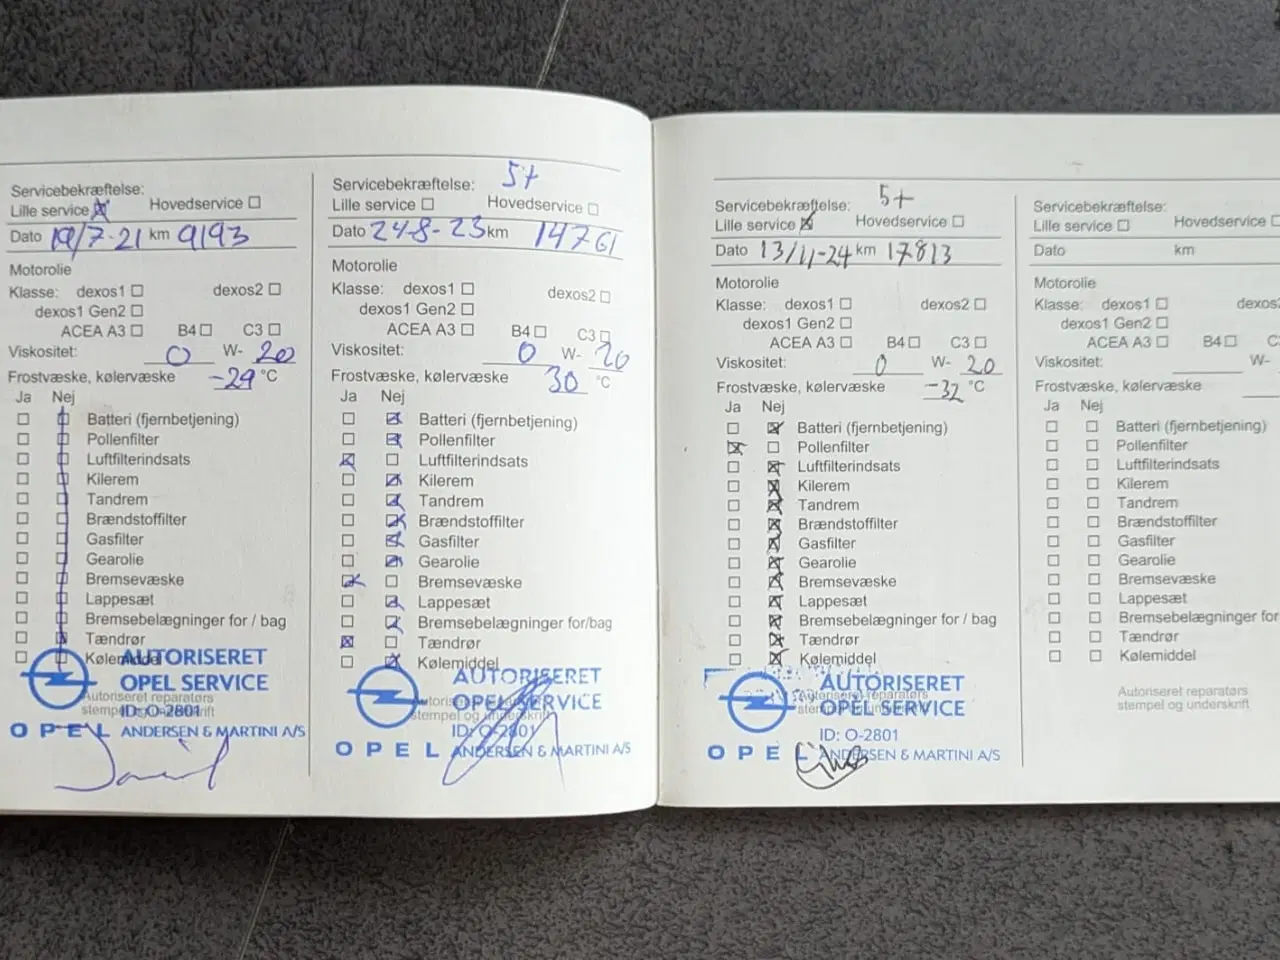 Servicebekræftelse:
Lille service Hovedservice
Dato 19/7-21 km 9193
Motorolie
Klasse: dexos1 dexos2
dexos1 Gen2
ACEA A3 B4 C3
Viskositet: 0 W- 20
Frostvæske, kølervæske -29 °C
Ja Nej
Batteri (fjernbetjening)
Pollenfilter
Luftfilterindsats
Kilerem
Tandrem
Brændstoffilter
Gasfilter
Gearolie
Bremsevæske
Lappesæt
Bremsebelægninger for / bag
Tændrør
Kølemiddel
AUTORISERET
OPEL SERVICE
Autoriseret reparatørs
stempel og underskrift
ID: O-2801
OPEL ANDERSEN & MARTINI A/S
5+
Servicebekræftelse:
Lille service Hovedservice
Dato 24-8-23 km 14761
Motorolie
Klasse: dexos1 dexos2
dexos1 Gen2
ACEA A3 B4 C3
Viskositet: 0 W- 20
Frostvæske, kølervæske 30 °C
Ja Nej
Batteri (fjernbetjening)
Pollenfilter
Luftfilterindsats
Kilerem
Tandrem
Brændstoffilter
Gasfilter
Gearolie
Bremsevæske
Lappesæt
Bremsebelægninger for/bag
Tændrør
Kølemiddel
AUTORISERET
OPEL SERVICE
Autoriseret reparatørs
stempel og underskrift
ID: O-2801
OPEL ANDERSEN & MARTINI A/S
5+
Servicebekræftelse:
Lille service Hovedservice
Dato 13/11-24 km 17813
Motorolie
Klasse: dexos1 dexos2
dexos1 Gen2
ACEA A3 B4 C3
Viskositet: 0 W- 20
Frostvæske, kølervæske -32 °C
Ja Nej
Batteri (fjernbetjening)
Pollenfilter
Luftfilterindsats
Kilerem
Tandrem
Brændstoffilter
Gasfilter
Gearolie
Bremsevæske
Lappesæt
Bremsebelægninger for / bag
Tændrør
Kølemiddel
AUTORISERET
Autoriseret reparatørs
OPEL SERVICE
stempel og underskrift
ID: O-2801
OPEL ANDERSEN & MARTINI A/S
Servicebekræftelse:
Lille service Hovedservice
Dato km
Motorolie
Klasse: dexos1 dexos
dexos1 Gen2
ACEA A3 B4 C
Viskositet: W-
Frostvæske, kølervæske
Ja Nej
Batteri (fjernbetjening)
Pollenfilter
Luftfilterindsats
Kilerem
Tandrem
Brændstoffilter
Gasfilter
Gearolie
Bremsevæske
Lappesæt
Bremsebelægninger for
Tændrør
Kølemiddel
Autoriseret reparatørs
stempel og underskrift